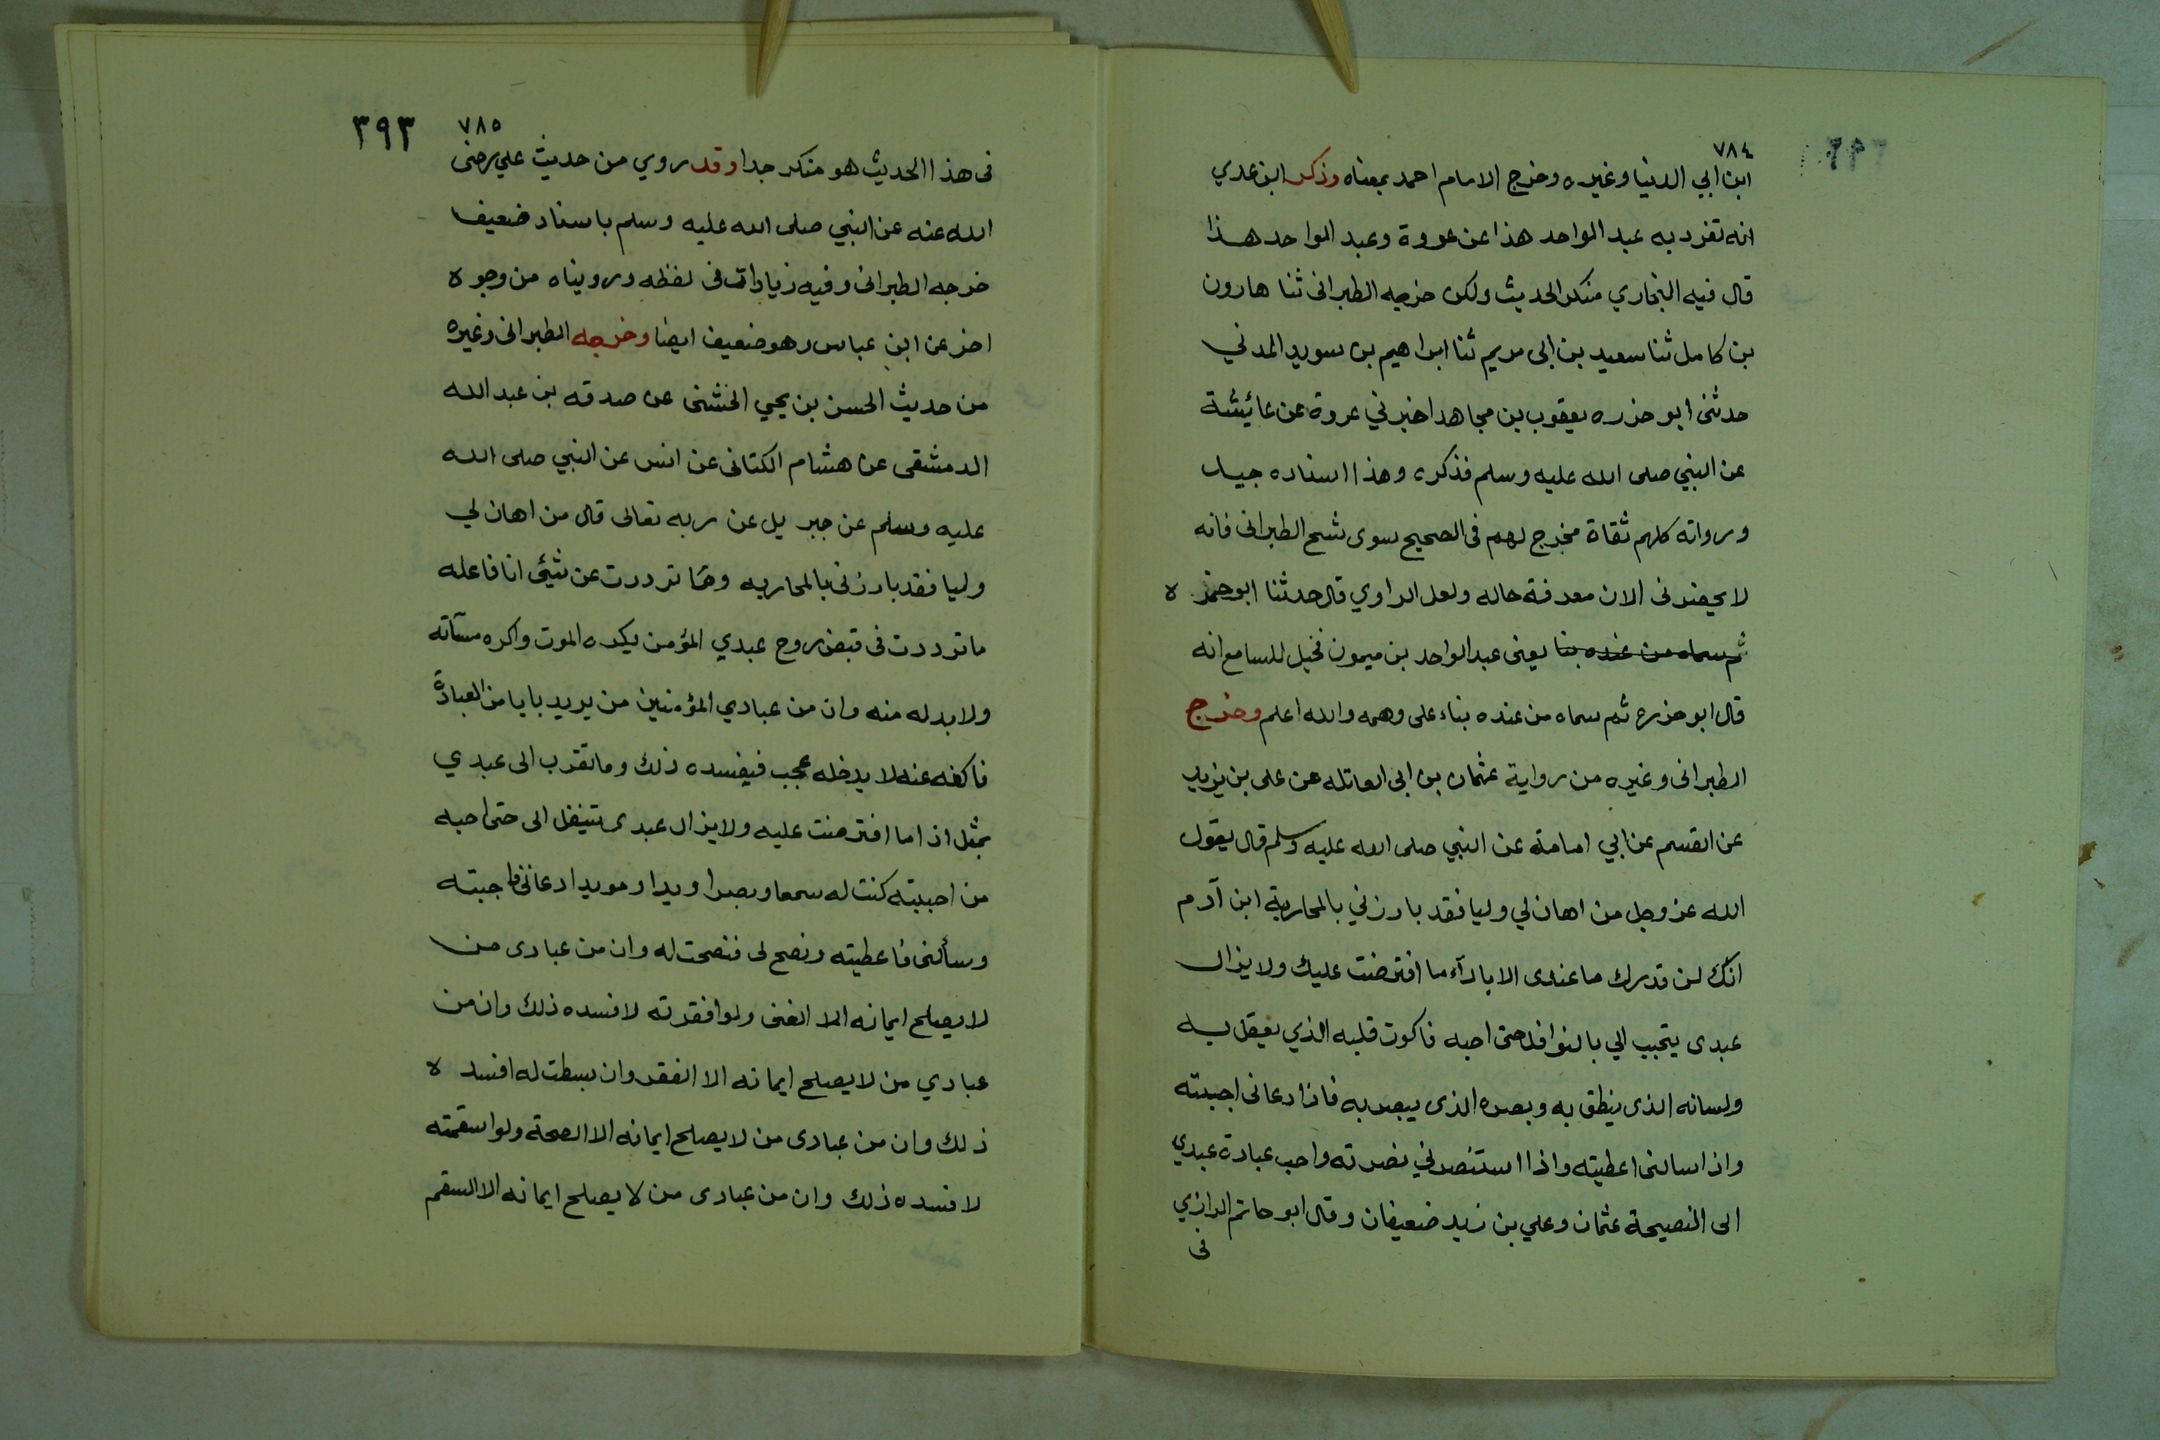 ٧٨٤
ابن ابي الدنيا وغيره وخرج الامام احمد بمعناه وذكر ابن عدي
انه تفرد به عبد الواحد هذا عن عروة وعبد الواحد هذا
قال فيه البخاري منكر الحديث ولكن خرجه الطبرانى ثنا هارون
بن كامل ثنا سعيد بن ابى مريم ثنا ابراهيم بن سويد المدني
حدثنى ابو حزره يعقوب بن مجاهد اخبرني عروة عن عائيشة
عن النبي صلى الله عليه وسلم فذكره وهذا اسناده جيد
ورواته كلهم ثقاة مخرج لهم فى الصحيح سوى شيخ الطبرانى فانه
لا يحضرنى الان معرفة حاله ولعل الراوي قال حدثنا ابو حمزه
ثم سماه من عنده بنا يعنى عبد الواحد بن ميمون فخيل للسامع انه
قال ابو حزره ثم سماه من عنده بناء على وهمه والله اعلم وخرج
الطبرانى وغيره من رواية عثمان بن ابى العاتله عن على بن يزيد
عن القسم عن ابي امامة عن النبي صلى الله عليه وسلم قال يقول
الله عز وجل من اهان لي وليا فقد بارزني بالمحاربة ابن آدم
انك لن تدرك ما عندى الا باداء ما افترضت عليك ولا يزال
عبدى يتحبب الي بالنوافل حتى احبه فاكون قلبه الذي يعقل به
ولسانه الذى ينطق به وبصره الذى يبصر به فاذا دعانى اجبته
واذا سالنى اعطيته واذا استنصرني نصرته واحب عبادة عبدي
الى النصيحة عثمان وعلي بن زيد ضعيفان وقال ابو حاتم الرازي
فى
٣٩٣
٧٨٥
فى هذا الحديث هو منكر جدا وقد روي من حديث علي رضى
الله عنه عن النبي صلى الله عليه وسلم باسناد ضعيف
خرجه الطبرانى وفيه زيادات فى لفظه ورويناه من وجوه
اخر عن ابن عباس وهو ضعيف ايضا وخرجه الطبرانى وغيره
من حديث الحسن بن يحيي الخشنى عن صدقه بن عبد الله
الدمشقى عن هشام الكتانى عن انس عن النبي صلى الله
عليه وسلم عن جبريل عن ربه تعالى قال من اهان لي
وليا فقد بارزنى بالمحاربه وما ترددت عن شيئ انا فاعله
ما ترددت فى قبض روح عبدي المؤمن يكره الموت واكره مسآته
ولا بد له منه وان من عبادي المؤمنين من يريد بابا من العبادة
فاكفه عنه لا يدخله عجب فيفسده ذلك وما تقرب الى عبدي
بمثل اذا ما افترضت عليه ولا يزال عبدى يتنفل الى حتى احبه
من احببته كنت له سمعا وبصرا ويدا ومويدا دعانى فاجبته
وسألنى فاعطيته ونصح لى فنصحت له وان من عبادى من
لا يصلح ايمانه الا الغنى ولو افقرته لافسده ذلك وان من
عبادي من لا يصلح ايمانه الا الفقر وان بسطت له افسده
ذلك وان من عبادى من لا يصلح ايمانه الا الصحة ولو اسقمته
لافسده ذلك وان من عبادى من لا يصلح ايمانه الا السقم